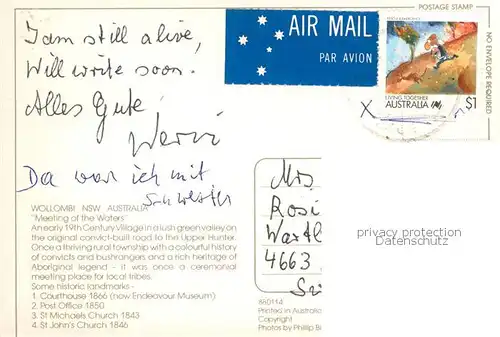 POSTAGE STAMP
NO ENVELOPE REQUIRED
AIR MAIL
PAR AVION
LIVING TOGETHER
AUSTRALIA $1
I am still alive,
Will write soon.
Alles Gute!
Da war ich mit
Schwester
WOLLOMBI NSW AUSTRALIA
"Meeting of the Waters"
An early 19th Century Village in a lush green valley on
the original convict-built road to the Upper Hunter.
Once a thriving rural township with a colourful history
of convicts and bushrangers and a rich heritage of
Aboriginal legend - it was once a ceremonial
meeting place for local tribes.
Some historic landmarks -
1. Courthouse 1866 (now Endeavour Museum)
2. Post Office 1850
3. St Michaels Church 1843
4. St John's Church 1846
Mrs
Rosi
Wartl
4663
privacy protection
Datenschutz
880114
Printed in Australia
Copyright
Photos by Phillip B